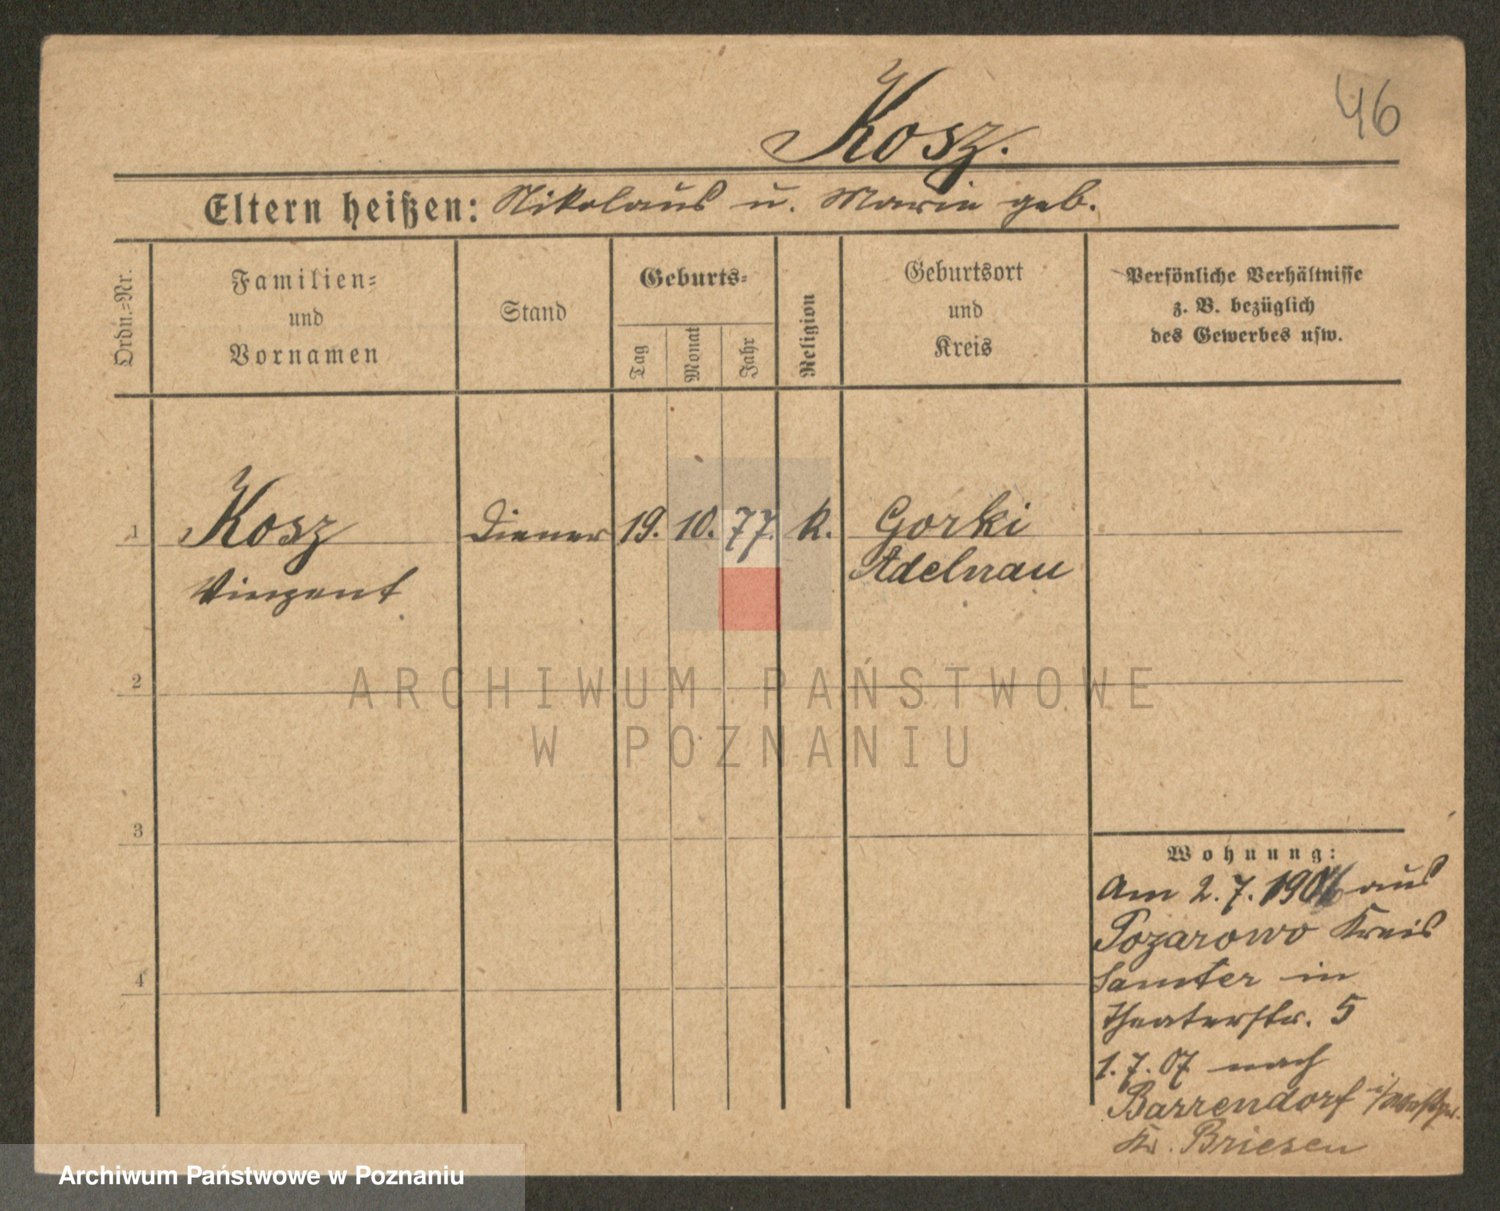 46
Kosz.
Eltern heißen: Nikolaus u. Marie geb.
Ordn.=Nr.
Familien=
und
Vornamen
Stand
Geburts=
Tag
Monat
Jahr
Religion
Geburtsort
und
Kreis
Persönliche Verhältnisse
z. B. bezüglich
des Gewerbes usw.
1 Kosz Diener 19. 10. 77. k. Gorki
Vinzent Adelnau
2
ARCHIWUM PAŃSTWOWE
W POZNANIU
3
Wohnung:
Am 2. 7. aus
Pozarowo Kreis
4
Samter in
Theaterstr. 5
1. 7. 07 nach
Barrendorf i/Westpr.
Kr. Briesen
Archiwum Państwowe w Poznaniu